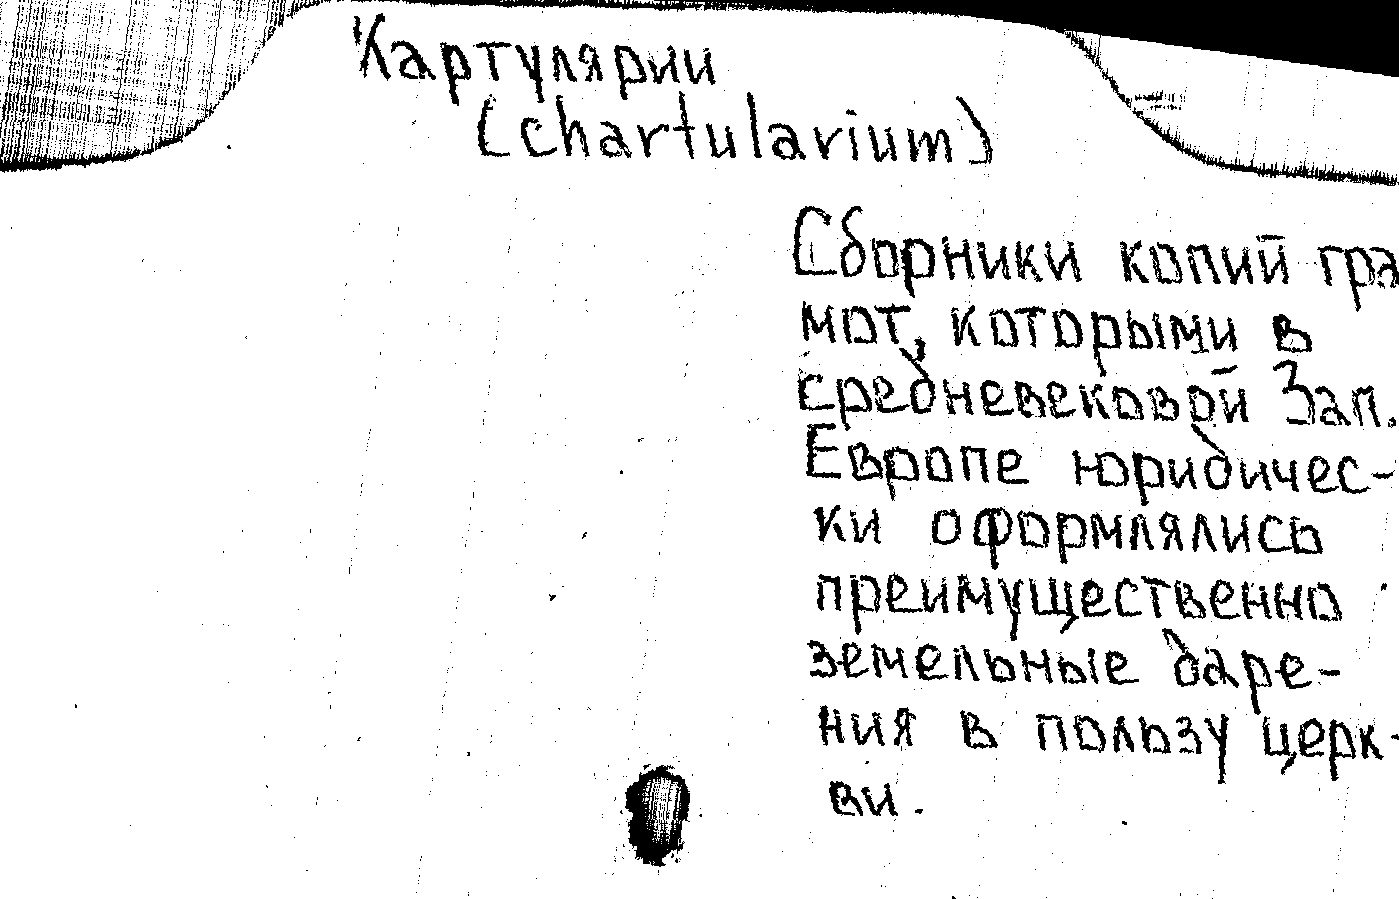 Картулярии
(chartularium)
Сборники копий гра
мот, которыми в
средневековой Зап.
Европе юридичес-
ки оформлялись
преимущественно
земельные даре-
ния в пользу церк-
ви.